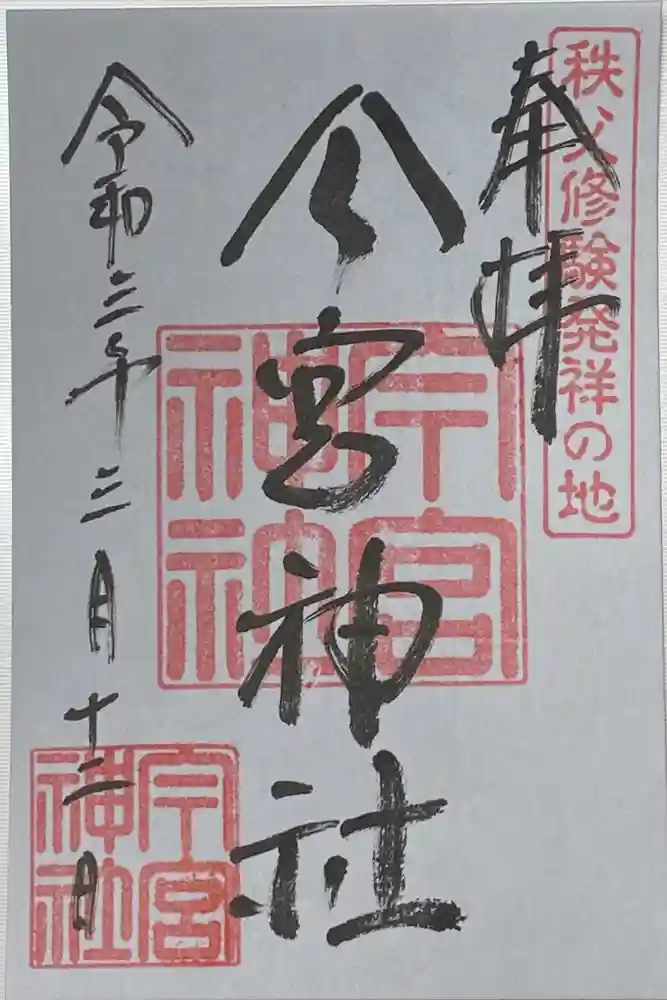 秩父修験発祥の地
奉拝
今宮神社
今宮
神社
令和三年三月十二日
今宮
神社